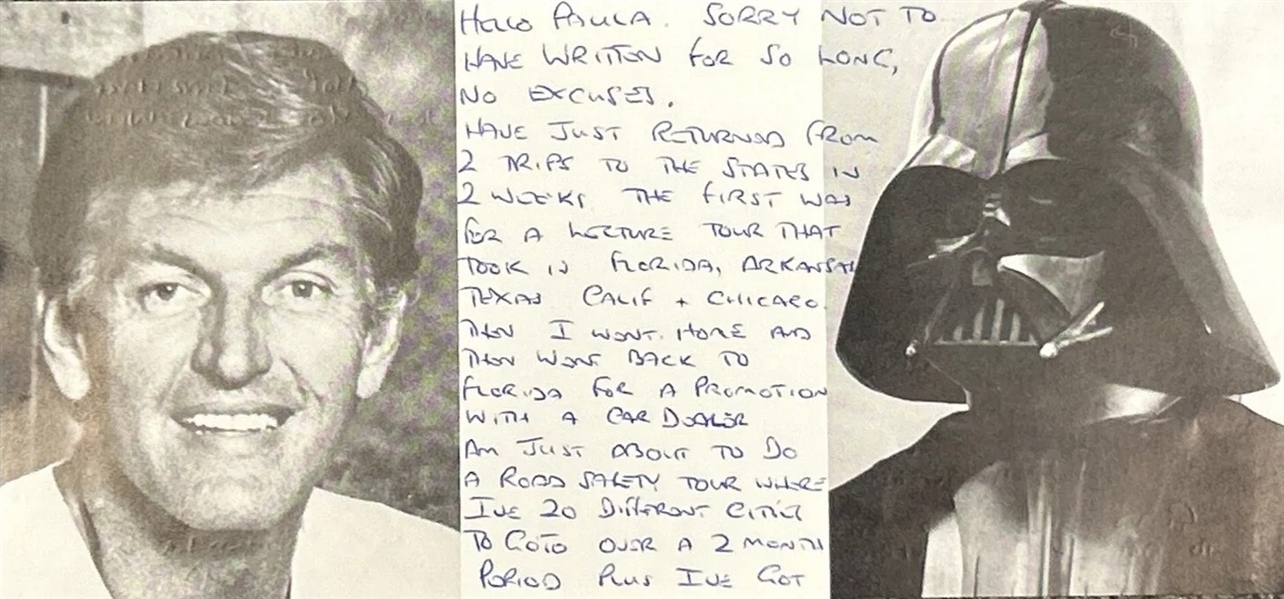 HELLO PAULA. SORRY NOT TO
HAVE WRITTEN FOR SO LONG,
NO EXCUSES.
HAVE JUST RETURNED FROM
2 TRIPS TO THE STATES IN
2 WEEKS. THE FIRST WAS
FOR A LECTURE TOUR THAT
TOOK IN FLORIDA, ARKANSAS
TEXAS CALIF + CHICAGO.
THEN I WENT HOME AND
THEN WENT BACK TO
FLORIDA FOR A PROMOTION
WITH A CAR DEALER
AM JUST ABOUT TO DO
A ROAD SAFETY TOUR WHERE
IVE 20 DIFFERENT CITIES
TO GOTO OVER A 2 MONTH
PERIOD PLUS IVE GOT